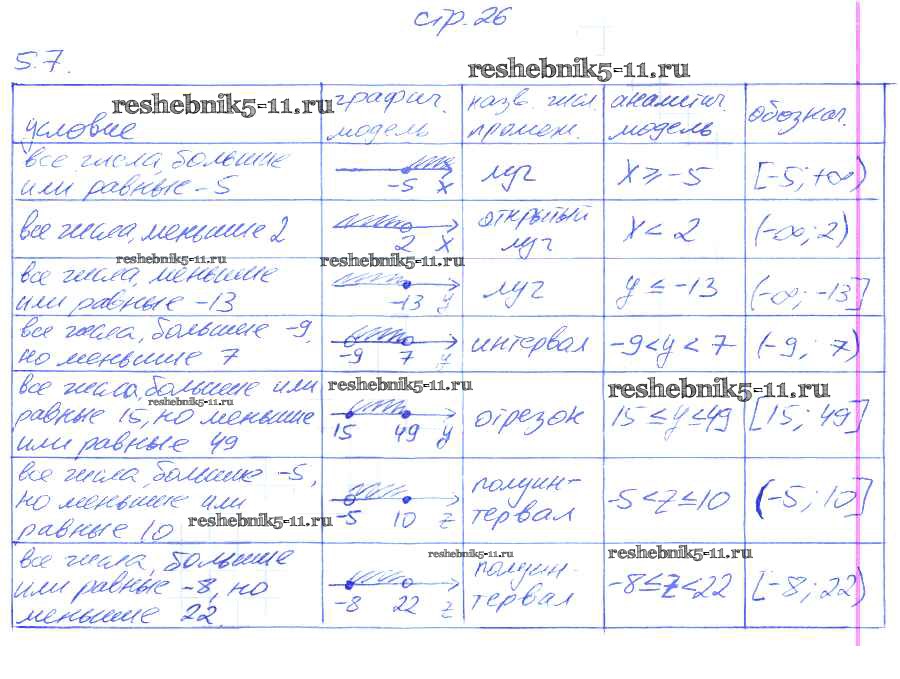 стр. 26
5.7.
reshebnik5-11.ru
условие | графич. модель | назв. числ. промеж. | аналитич. модель | обознач.
reshebnik5-11.ru
все числа, большие или равные -5 | -5 x | луч | x ≥ -5 | [-5; +∞)
все числа, меньшие 2 | 2 x | открытый луч | x < 2 | (-∞; 2)
reshebnik5-11.ru reshebnik5-11.ru
все числа, меньшие или равные -13 | -13 y | луч | y ≤ -13 | (-∞; -13]
все числа, большие -9, но меньшие 7 | -9 7 y | интервал | -9 < y < 7 | (-9; 7)
reshebnik5-11.ru reshebnik5-11.ru
reshebnik5-11.ru
все числа, большие или равные 15, но меньшие или равные 49 | 15 49 y | отрезок | 15 ≤ y ≤ 49 | [15; 49]
все числа, больше -5, но меньшие или равные 10 | -5 10 z | полуинтервал | -5 < z ≤ 10 | (-5; 10]
reshebnik5-11.ru
reshebnik5-11.ru reshebnik5-11.ru
все числа, большие или равные -8, но меньшие 22. | -8 22 z | полуинтервал | -8 ≤ z < 22 | [-8; 22)